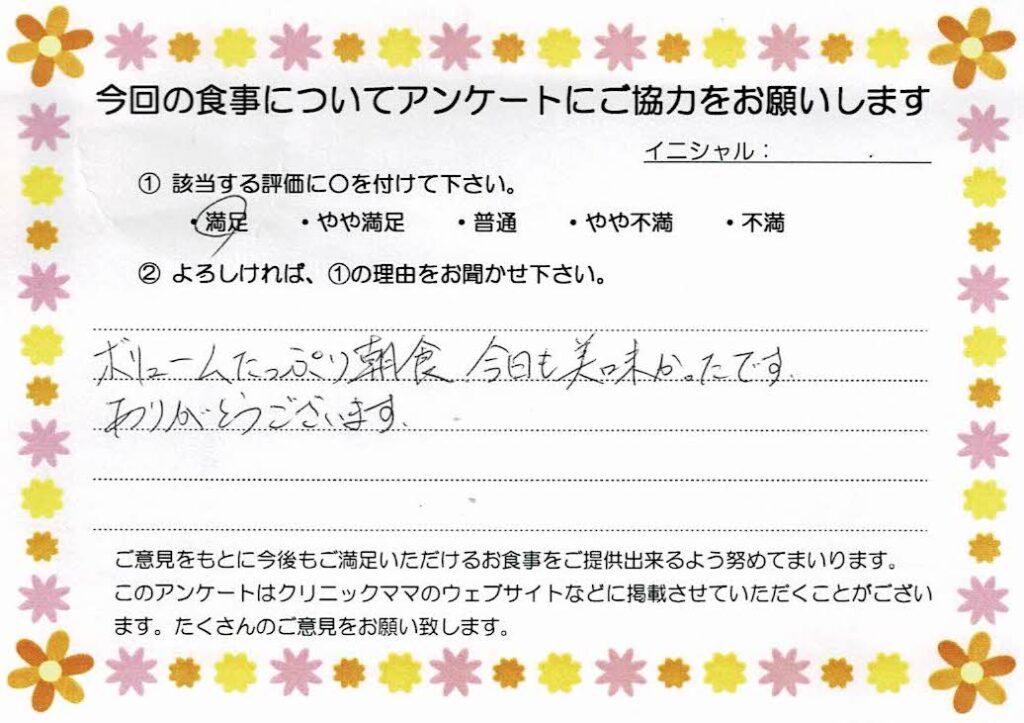 今回の食事についてアンケートにご協力をお願いします
イニシャル：
① 該当する評価に〇を付けて下さい。
・満足 ・やや満足 ・普通 ・やや不満 ・不満
② よろしければ、①の理由をお聞かせ下さい。
ボリュームたっぷり朝食、今日も美味かったです.
ありがとうございます.
ご意見をもとに今後もご満足いただけるお食事をご提供出来るよう努めてまいります。
このアンケートはクリニックママのウェブサイトなどに掲載させていただくことがござい
ます。たくさんのご意見をお願い致します。